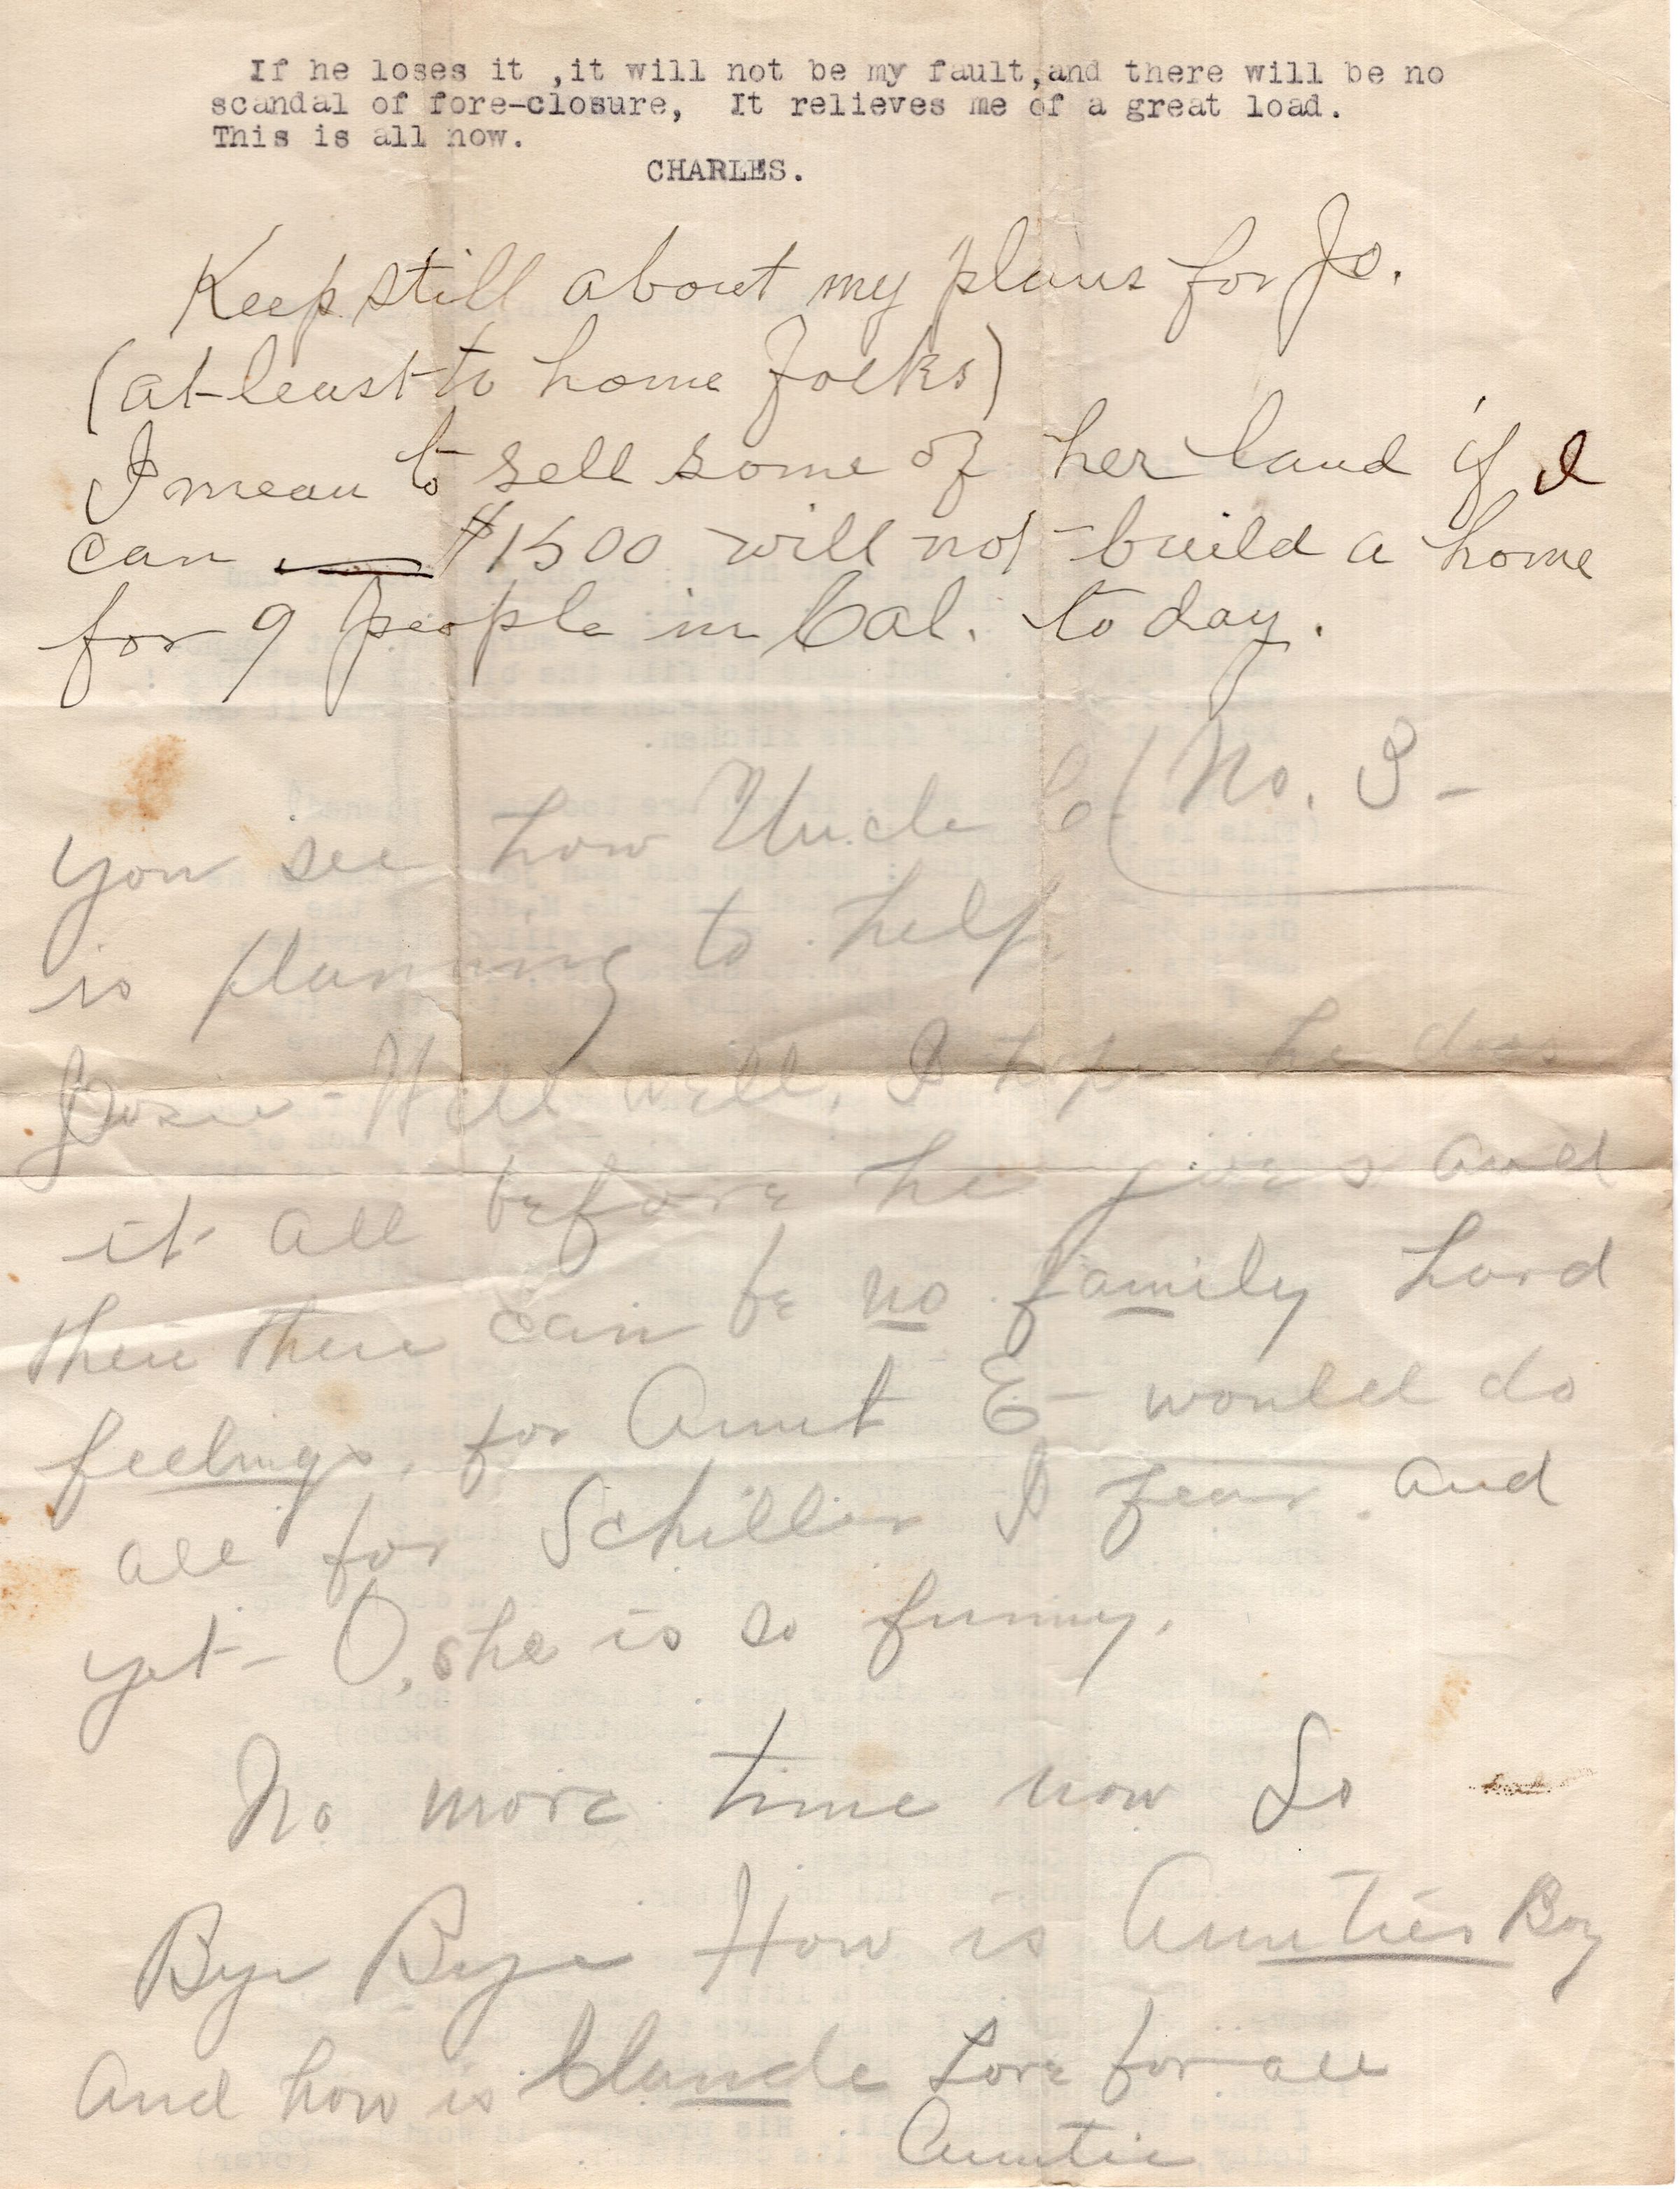 If he loses it ,it will not be my fault,and there will be no
scandal of fore-closure, It relieves me of a great load.
This is all now.
CHARLES.
Keep still about my plans for Jo.
(at least to home folks)
I mean to sell some of her land if I
can $1500 will not build a home
for 9 people in Cal. today.
(No. 3-
you see how Uncle C
is planning to help
Josie - Well well, I hope he does
it all before he goes and
then there can be no family hard
feelings, for Aunt E - would do
all for Schiller I fear and
yet - O, she is so funny.
No more time now So
Bye Bye How is Aunties Boy
And how is Claude Love for all
Auntie